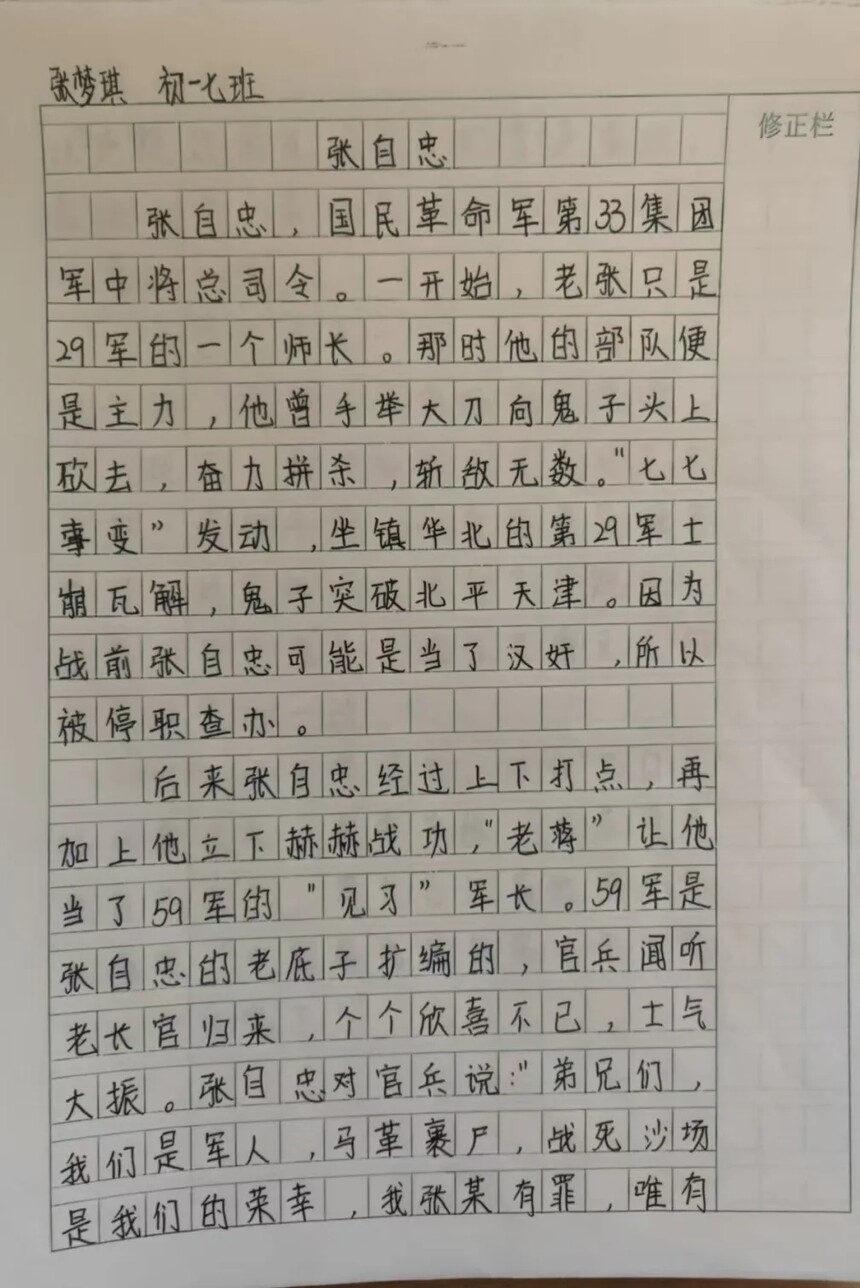 张梦琪 初一七班
修正栏
张自忠
张自忠，国民革命军第33集团
军中将总司令。一开始，老张只是
29军的一个师长。那时他的部队便
是主力，他曾手举大刀向鬼子头上
砍去，奋力拼杀，斩敌无数。"七七
事变"发动，坐镇华北的第29军士
崩瓦解，鬼子突破北平天津。因为
战前张自忠可能是当了汉奸，所以
被停职查办。
后来张自忠经过上下打点，再
加上他立下赫赫战功，"老蒋"让他
当了59军的"见习"军长。59军是
张自忠的老底子扩编的，官兵闻听
老长官归来，个个欣喜不已，士气
大振。张自忠对官兵说："弟兄们，
我们是军人，马革裹尸，战死沙场
是我们的荣幸，我张某有罪，唯有